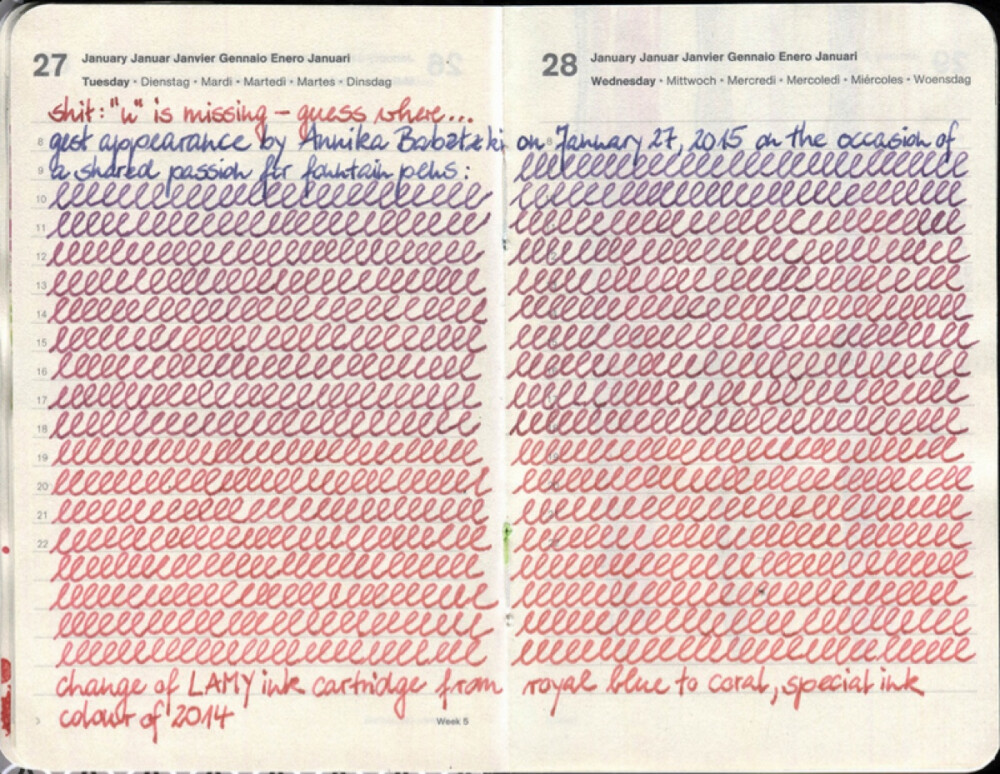 27 January Januar Janvier Gennaio Enero Januari
Tuesday • Dienstag • Mardi • Martedì • Martes • Dinsdag
28 January Januar Janvier Gennaio Enero Januari
Wednesday • Mittwoch • Mercredi • Mercoledì • Miércoles • Woensdag
shit: "u" is missing – guess where...
8 gest appearance by Annika Babatzki on January 27, 2015 on the occasion of
9 a shared passion for fountain pens:
10
11
12
13
14
15
16
17
18
19
20
21
22
change of LAMY ink cartridge from royal blue to coral, special ink
colour of 2014
Week 5